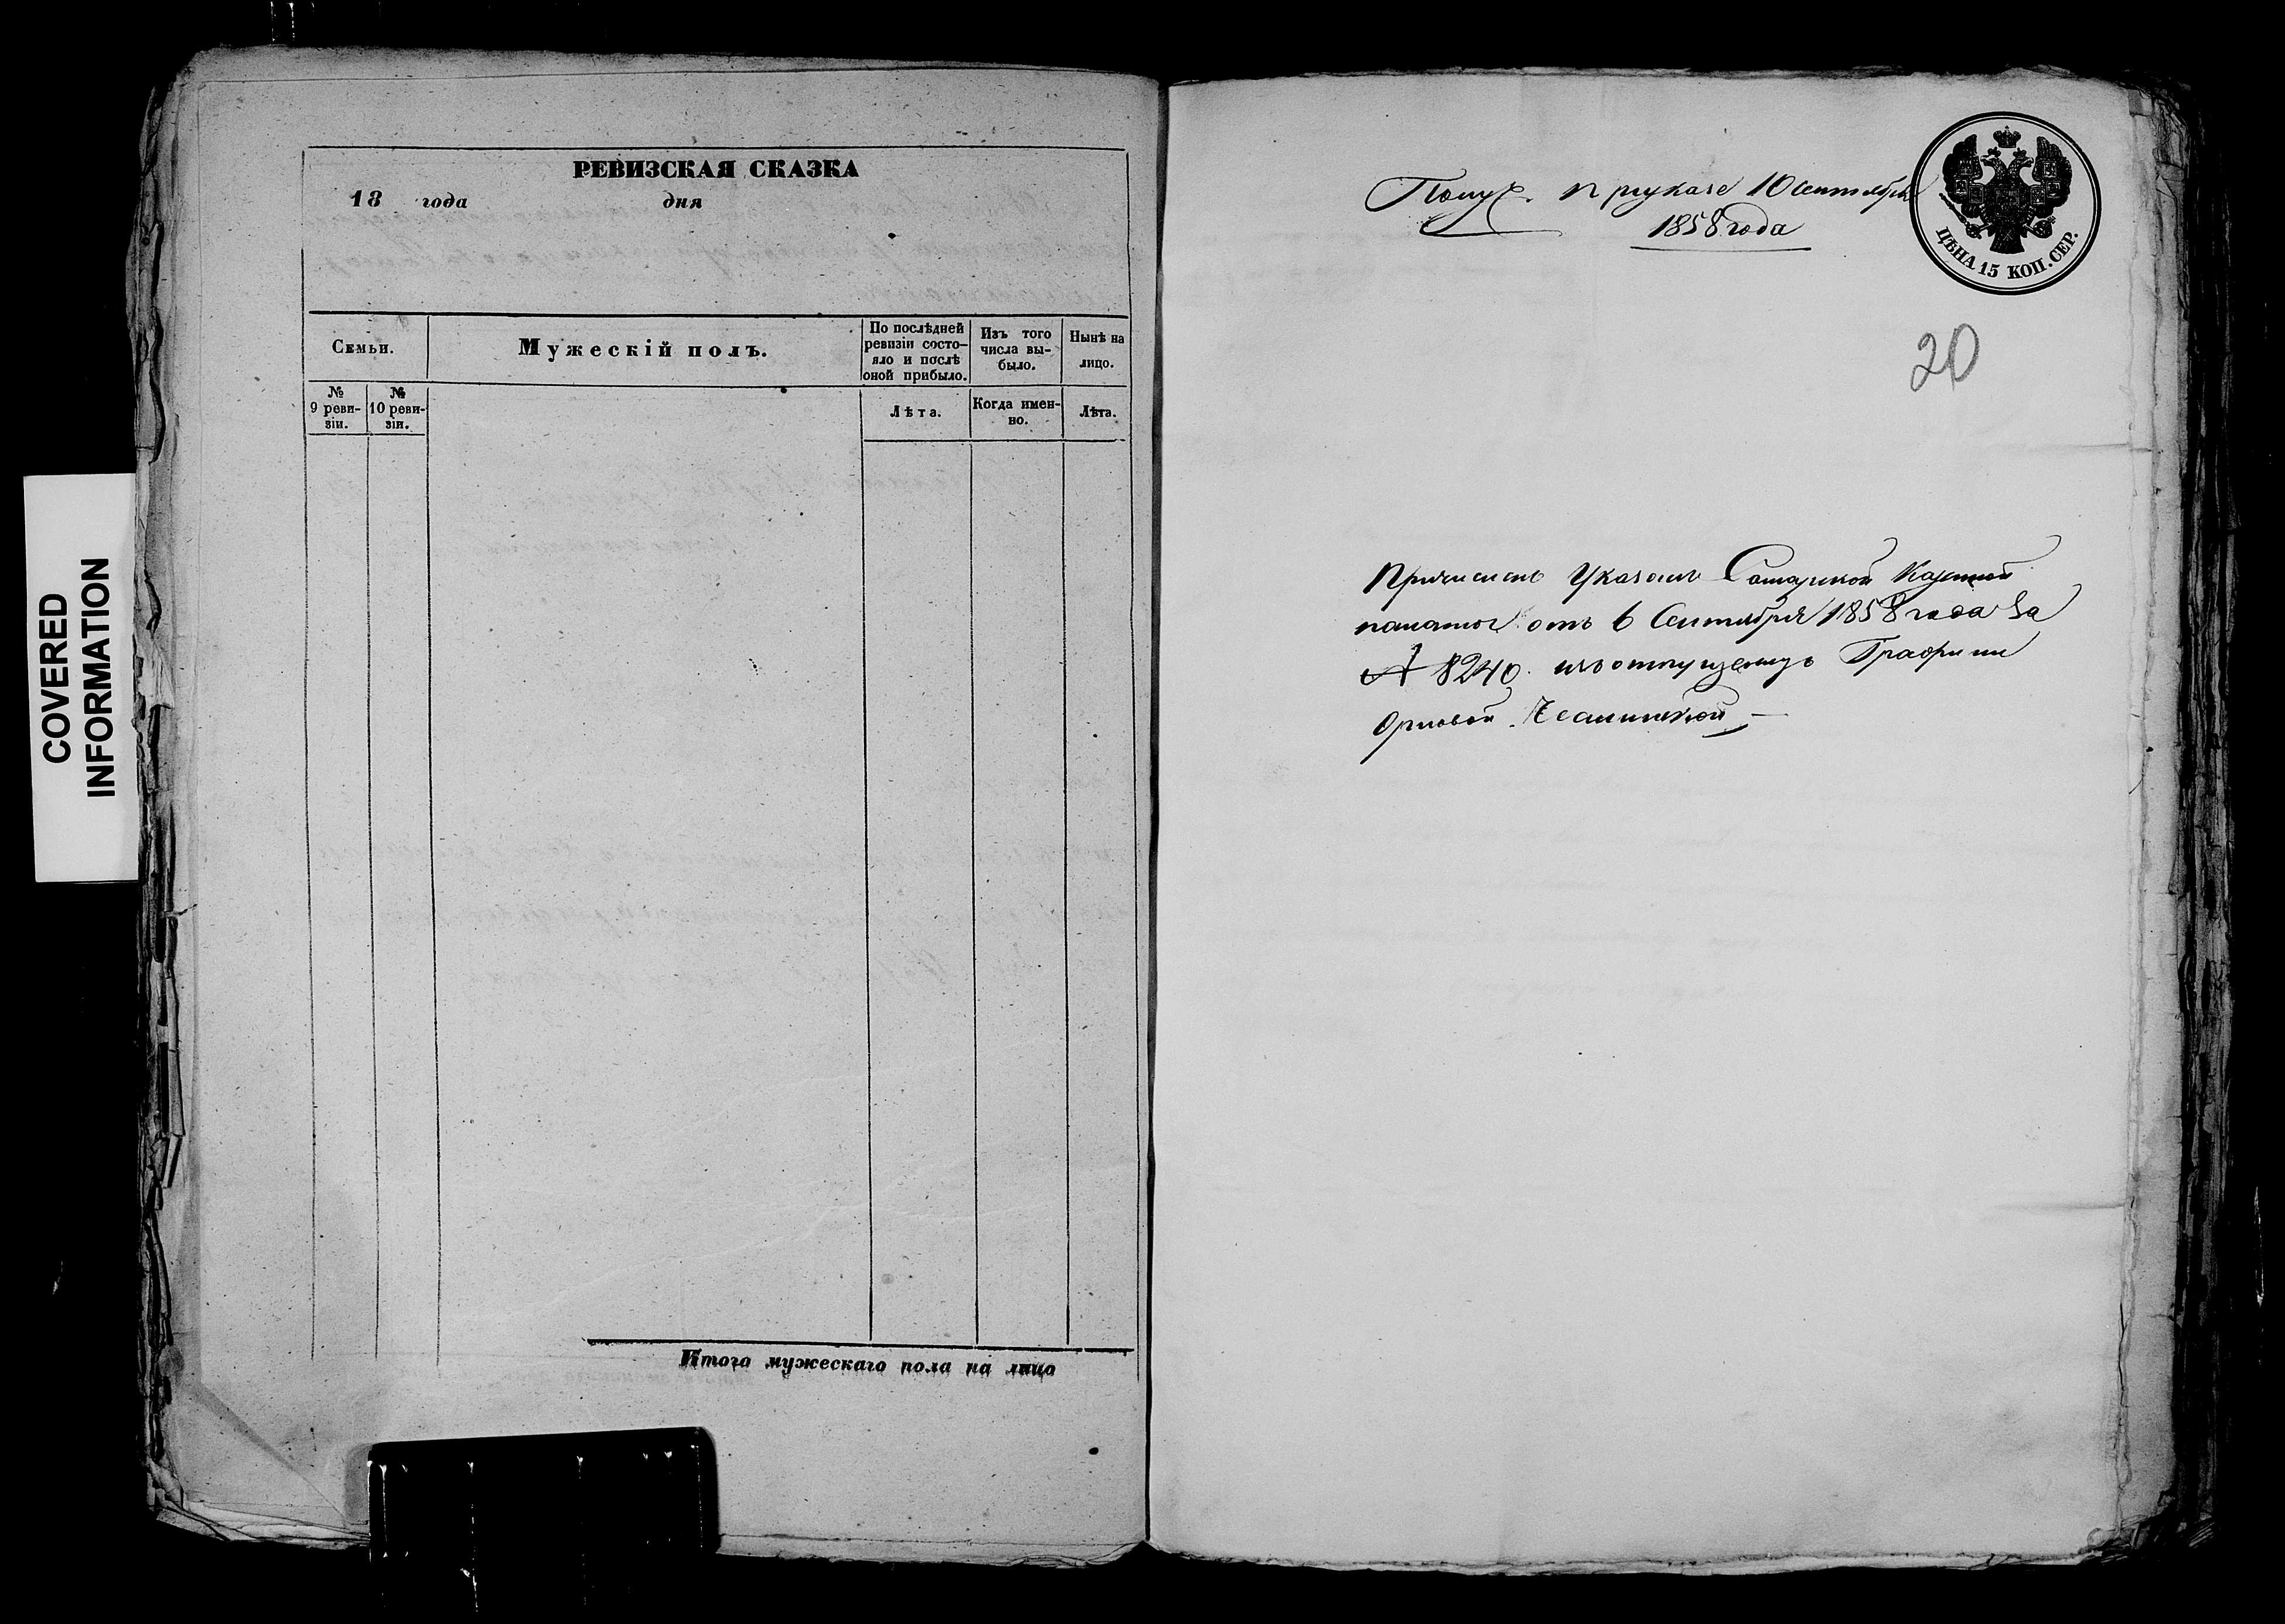 COVERED
INFORMATION
РЕВИЗСКАЯ СКАЗКА
18 года дня
Семьи.
Мужескій полъ.
По послѣдней
ревизіи состо-
яло и послѣ
оной прибыло.
Изъ того
числа вы-
было.
Нынѣ на
лицо.
№
9 реви-
зіи.
№
10 реви-
зіи.
Лѣта.
Когда имен-
но.
Лѣта.
Итого мужескаго пола на лицо
Получ. при указе 10 Сентября
1858 года
ЦѢНА 15 КОП. СЕР.
20
Причисленъ Указомъ Самарской Казенной
палаты отъ 6 Сентября 1858 года За
№ 8240. изъ отпущенныхъ Графини
Орловой Чесменской